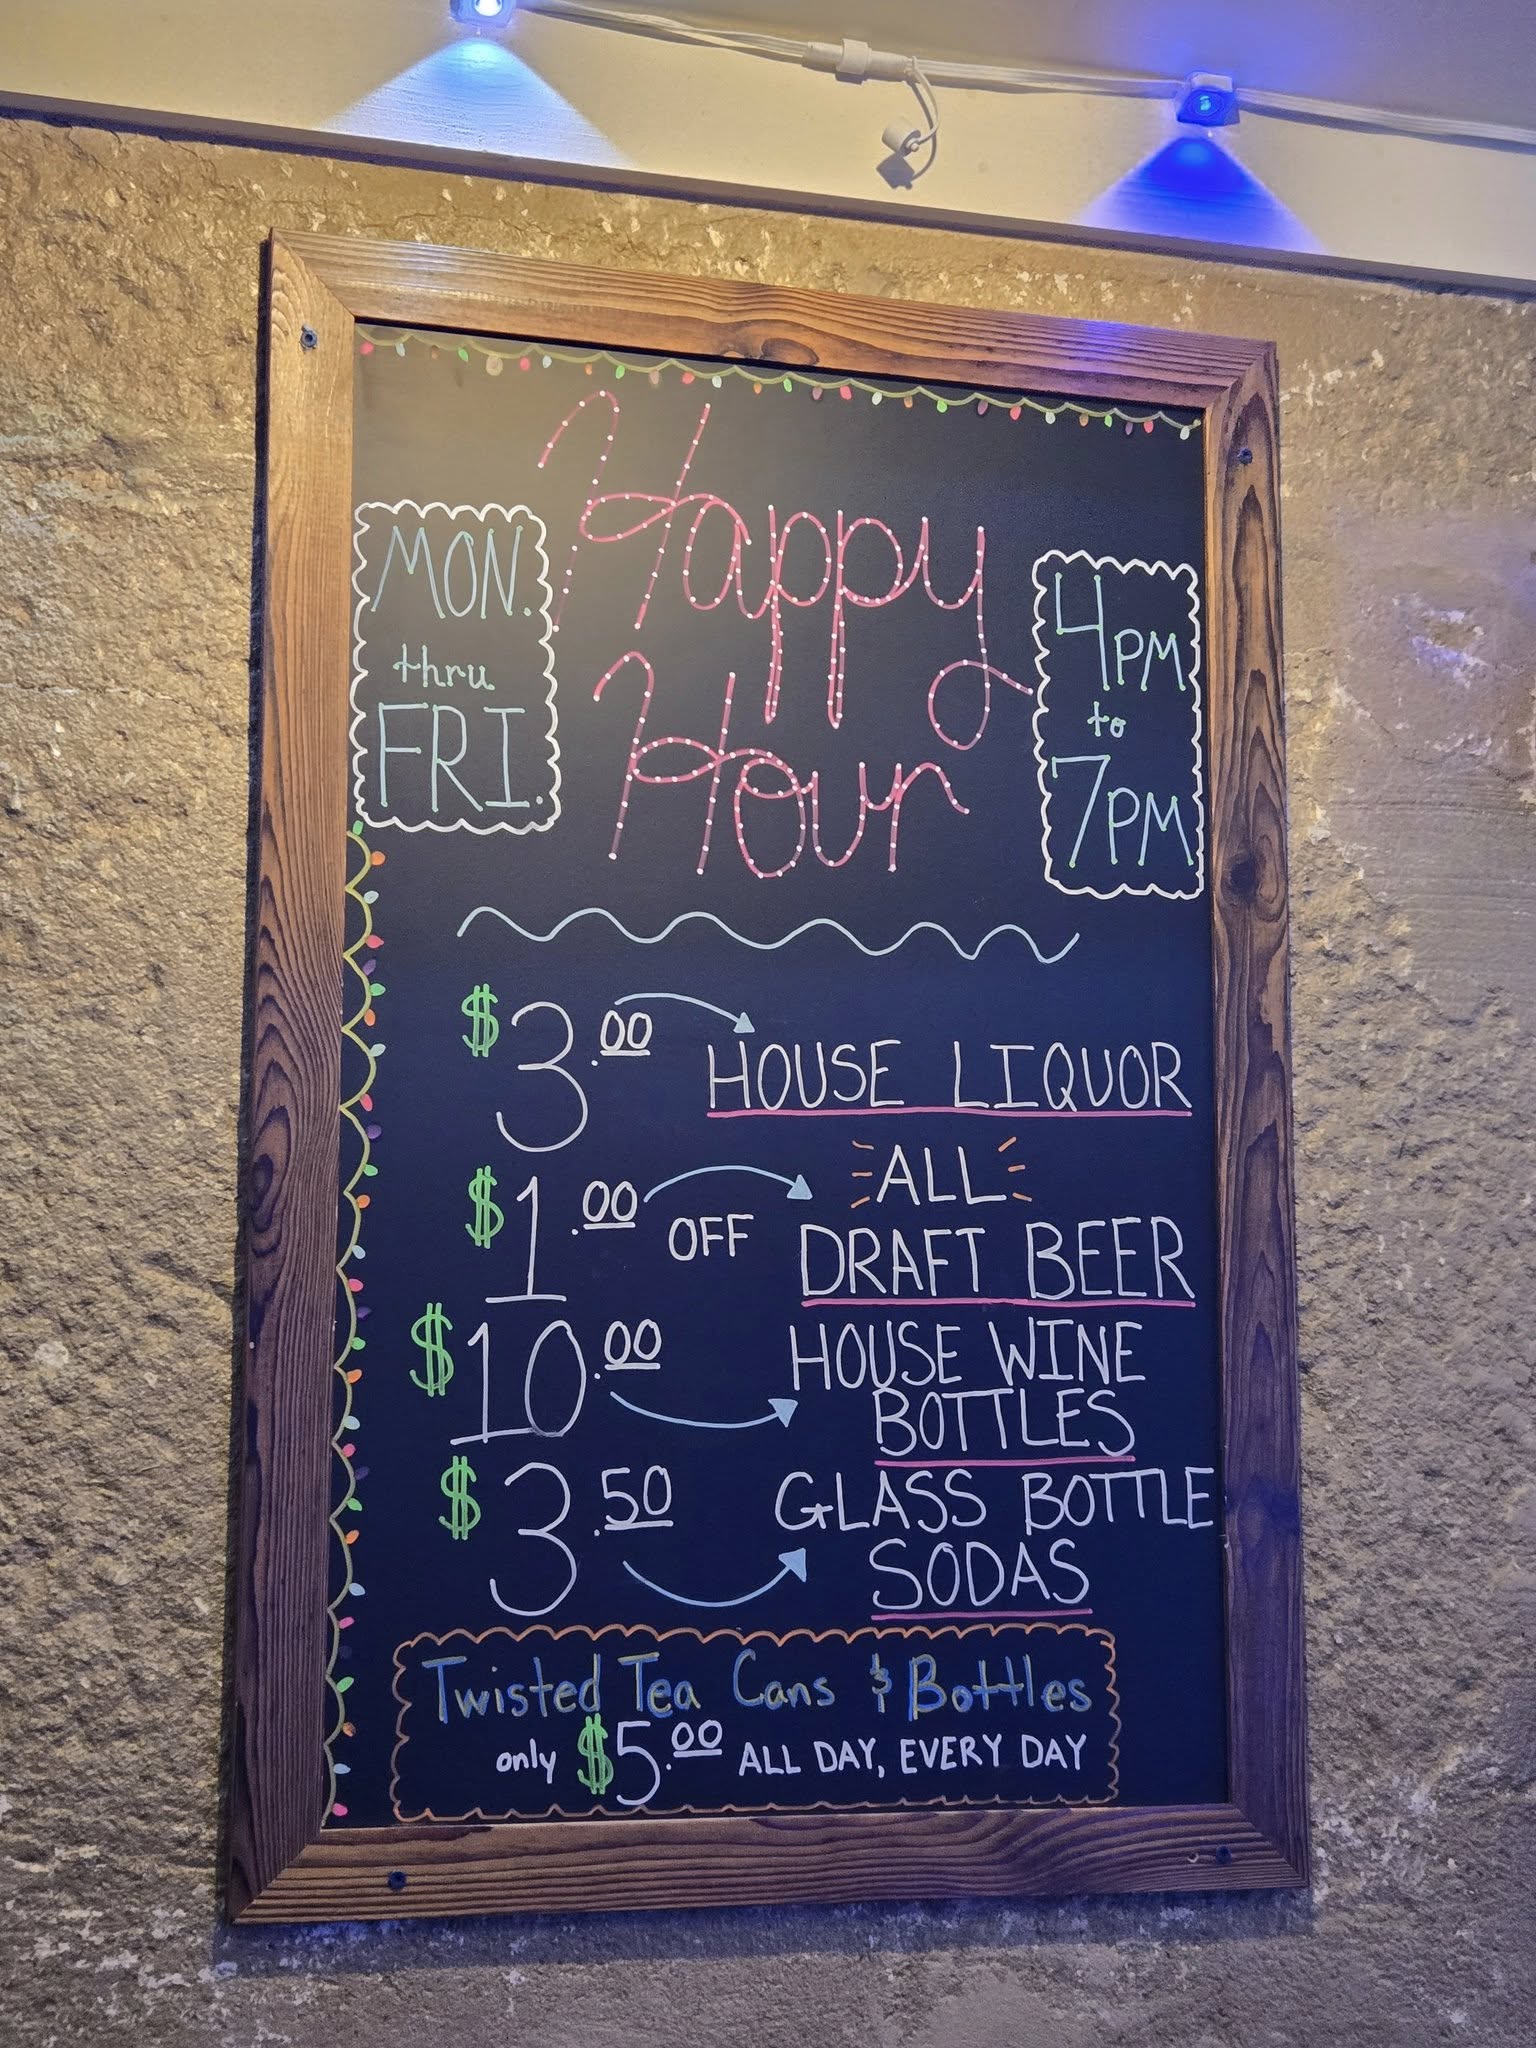 Happy
Hour
MON.
thru
FRI.
4PM
to
7PM
$3.00 HOUSE LIQUOR
$1.00 OFF ALL
DRAFT BEER
$10.00 HOUSE WINE
BOTTLES
$3.50 GLASS BOTTLE
SODAS
Twisted Tea Cans & Bottles
only $5.00 ALL DAY, EVERY DAY